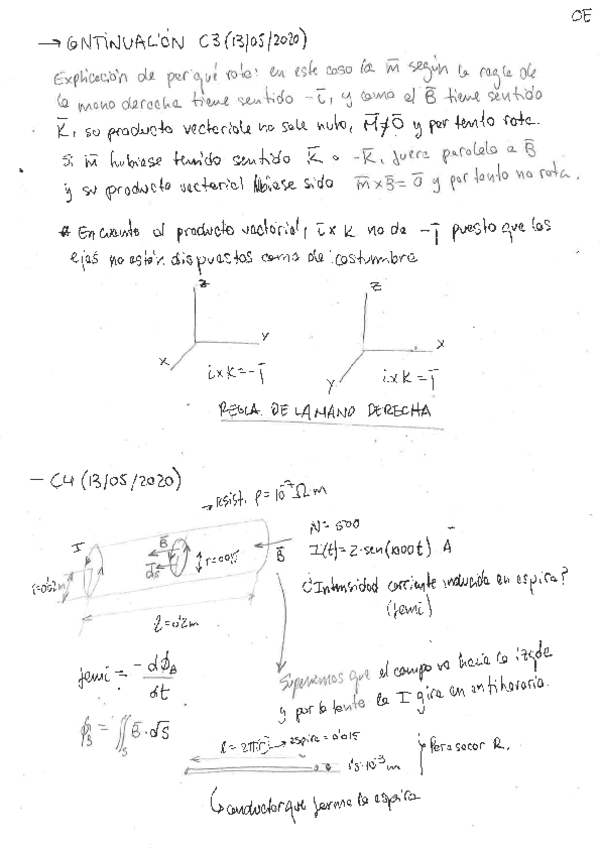 OE
→ CONTINUACIÓN C3 (13/05/2020)
Explicación de por qué rota: en este caso la m̄ según la regla de
la mano derecha tiene sentido -ī, y como el B̄ tiene sentido
K̄, su producto vectorial no sale nulo, M̄≠0̄ y por tanto rota.
Si m̄ hubiese tenido sentido K̄ o -K̄, fuera paralelo a B̄
y su producto vectorial hubiese sido m̄ x B̄ = 0̄ y por tanto no rota.
* En cuanto al producto vectorial, ī x K no da -j̄ puesto que los
ejes no están dispuestos como de costumbre
z
y
x
i x K = -j̄
z
x
y
i x K = j̄
REGLA DE LA MANO DERECHA
- C4 (13/05/2020)
→ resist. ρ = 10⁻⁷ Ω m
N = 500
I(t) = 2·sen(1000t) A
¿Intensidad corriente inducida en espira?
(femi)
I
B̄
dS̄
B̄
l = 0'2m
Suponemos que el campo va hacia la izqda
y por lo tanto la I gira en antihorario.
femi = -dϕ_B / dt
ϕ_B = ∬_S B̄ · dS̄
l = 2π(r) → espira = 0'015
1'5·10⁻³ m
Para sacar R.
↳ conductor que forma la espira